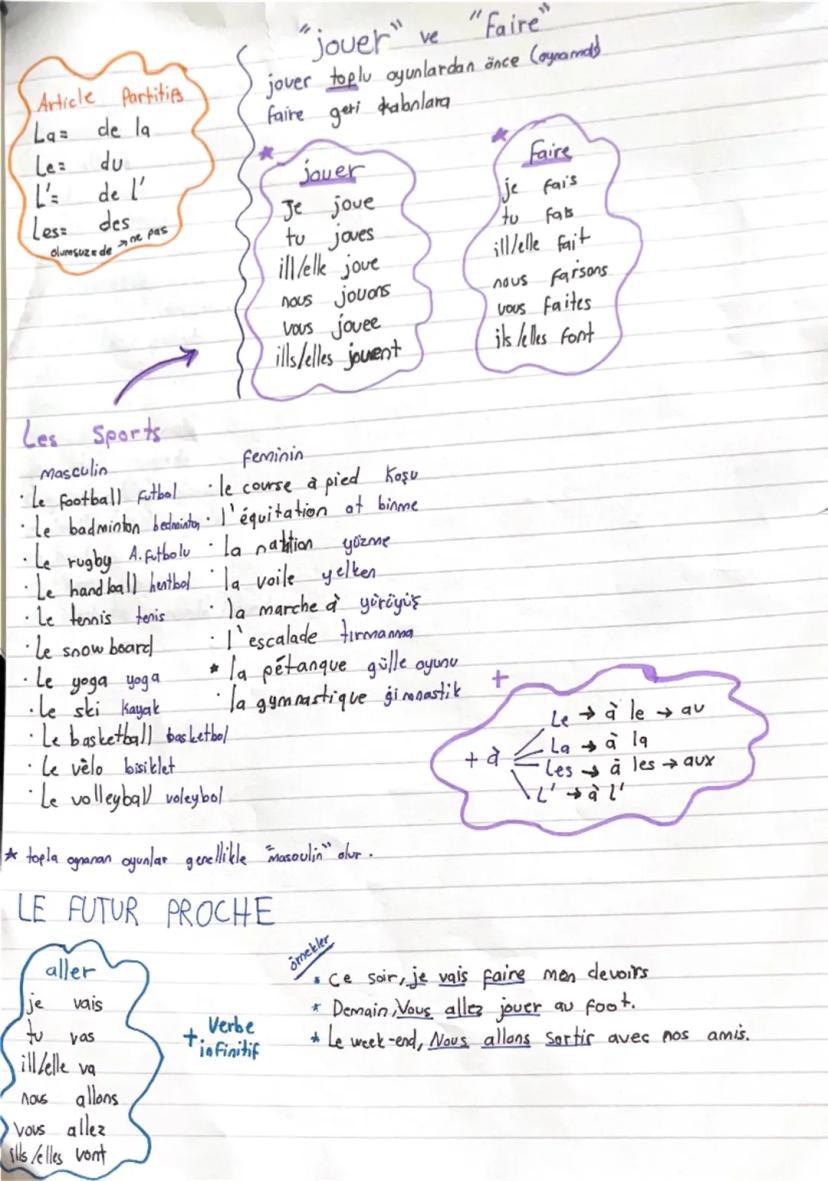 "jouer" ve "Faire"
jouer toplu oyunlardan önce (oynamak)
faire geri kalanlara
Article Partitifs
La= de la
Le= du
L'= de l'
Les= des
olumsuzede → ne pas
jouer
Je joue
tu joues
ill/elle joue
nous jouons
vous jouee
ills/elles jouent
Faire
je fais
tu fais
ill/elle fait
nous faisons
vous faites
ils/elles font
Les Sports
masculin
· Le football futbol
· Le badminton bedminton
· Le rugby A.futbolu
· Le handball hentbol
· Le tennis tenis
· Le snowboard
· Le yoga yoga
· Le ski kayak
· Le basketball basketbol
· Le vèlo bisiklet
· Le volleyball voleybol
feminin
· le course à pied koşu
· l'équitation at binme
· La natation yüzme
· la voile yelken
· la marche à yürüyüş
· l'escalade tırmanma
* la pétanque gülle oyunu
· la gymnastique jimnastik
+
+ à
Le → à le → au
La → à la
Les → à les → aux
L' → à l'
★ topla oynanan oyunlar genellikle "masculin" olur.
LE FUTUR PROCHE
aller
je vais
tu vas
ill/elle va
nous allons
vous allez
ills/elles vont
+ Verbe
infinitif
örnekler
* Ce soir, je vais faire mon devoirs
* Demain, Vous allez jouer au foot.
* Le week-end, Nous allons Sortir avec nos amis.